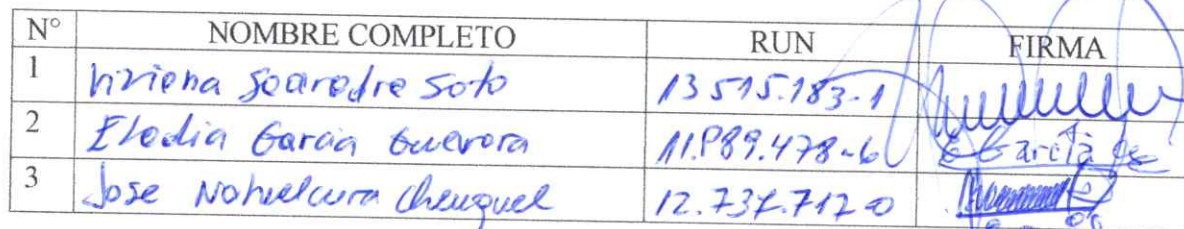 N° NOMBRE COMPLETO RUN FIRMA
1 Viviena Saavedra Soto 13 515.183-1
2 Eledia Garcia Guevara 11.989.478-6 E Garcia
3 Jose Nahuelcura Cheuquel